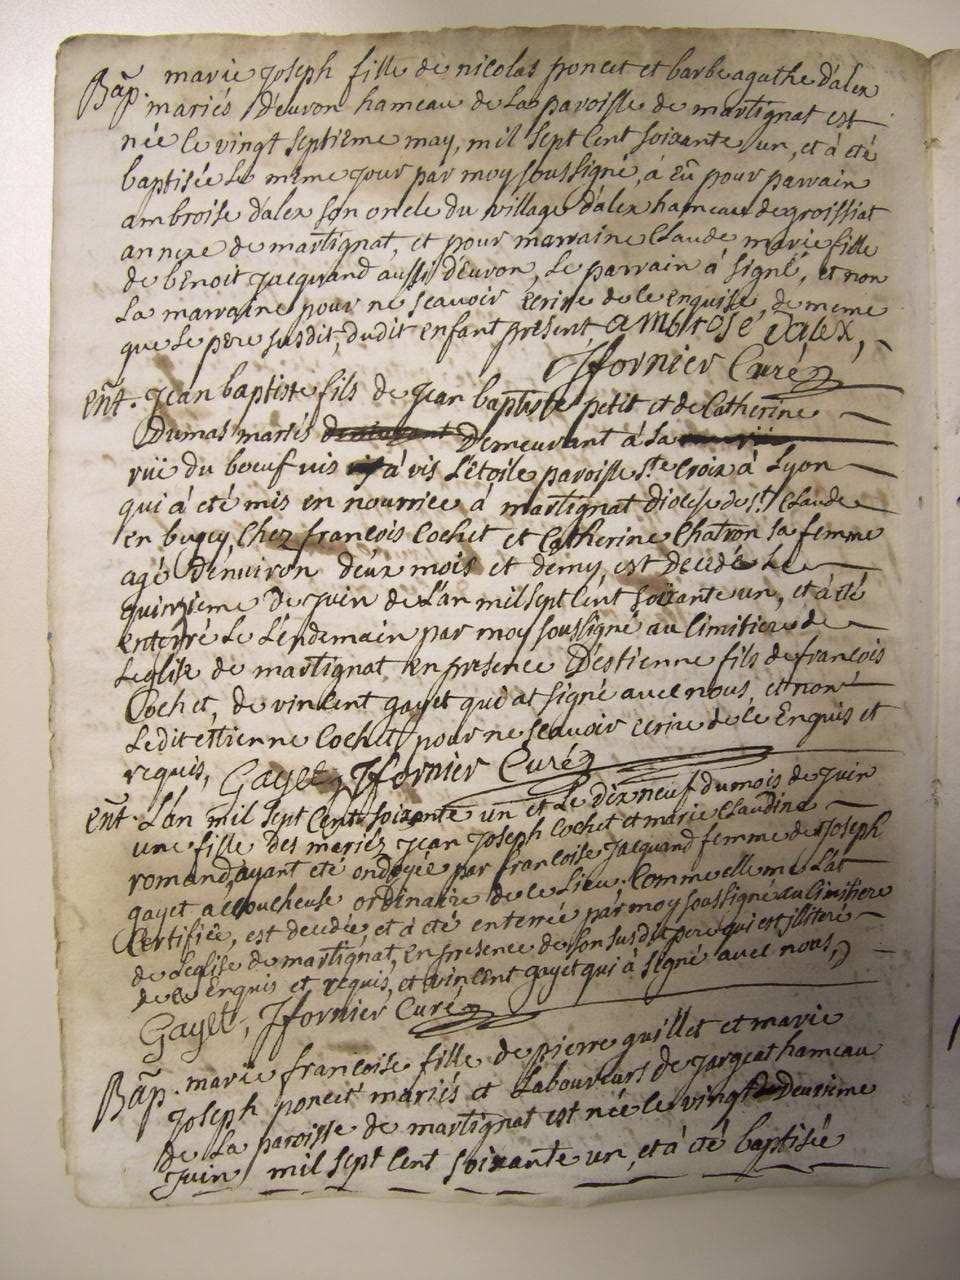 Bap. marie joseph fille de nicolas poncet et barbe agathe d'alex
mariés d'euron hameau de la paroisse de martignat est
née le vingt septieme may, mil sept cent soixante un, et à eté
baptisée le même jour par moy soussigné, à eû pour parrain
ambroise d'alex son oncle du village d'alex hameau de groissiat
annexe de martignat, et pour marraine Claude marie fille
de benoit jacquand aussi d'euron, le parrain à signé, et non
la marraine pour ne scavoir ecrire de ce enquise, de meme
que le pere susdit, dudit enfant present, ambroise dalex,
Jfornier Curé
ent. Jean baptiste fils de jean baptiste petit et de Catherine
Dumas mariés demeurant à la
rüe du boeuf vis à vis l'étoile paroisse ste Croix à Lyon
qui à eté mis en nourrice à martignat diocese de st Claude
en bugey, chez françois Cochet et Catherine Chatron sa femme
agé d'environ deux mois et demy, est decedé le
quinzieme de juin de l'an mil sept cent soixante un, et à eté
enterré le lendemain par moy soussigné au cimitiere de
l'eglise de martignat en presence d'estienne fils de françois
Cochet, de vincent gayet qui at signé avec nous, et non
ledit ettienne Cochet pour ne scavoir ecrire de ce Enquis et
requis, Gayet, Jfornier Curé
ent. L'an mil sept cent soixante un et le dix neuf du mois de juin
une fille des mariez jean joseph Cochet et marie Claudine
romand, ayant eté ondoyée par françoise jacquand femme de joseph
gayet accoucheuse ordinaire de ce lieu, comme elle me l'at
Certifiée, est decedée, et à eté enterrée par moy soussigné au cimitiere
de l'eglise de martignat, en presence de son susdit pere qui est illiteré
de ce enquis et requis, et vincent gayet qui à signé avec nous,
Gayet, Jfornier Curé
Bap. marie françoise fille de pierre guillet et marie
joseph poncet mariés et Laboureurs de jargeat hameau
de la paroisse de martignat est née le vingt deuxieme
juin mil sept cent soixante un, et à eté baptisée